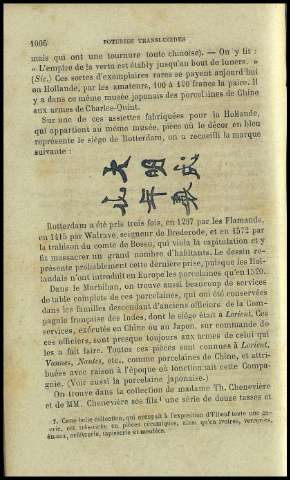 1006 POTERIES TRANSLUCIDES
mais qui ont une tournure toute chinoise). — On y lit :
« L'empire de la vertu est établi jusqu'au bout de lunera. »
(Sic.) Ces sortes d'exemplaires rares se payent aujourd'hui
en Hollande, par les amateurs, 100 à 120 francs la paire. Il
y a dans ce même musée japonais des porcelaines de Chine
aux armes de Charles-Quint.
Sur une de ces assiettes fabriquées pour la Hollande,
qui appartient au même musée, pièce où le décor en bleu
représente le siége de Rotterdam, on a recueilli la marque
suivante :
大 明 成
年
Rotterdam a été pris trois fois, en 1297 par les Flamands,
en 1415 par Walrave, seigneur de Brederode, et en 1572 par
la trahison du comte de Bossu, qui viola la capitulation et y
fit massacrer un grand nombre d'habitants. Le dessin re-
présente probablement cette dernière prise, puisque les Hol-
landais n'ont introduit en Europe les porcelaines qu'en 1520.
Dans le Morbihan, on trouve aussi beaucoup de services
de table complets de ces porcelaines, qui ont été conservées
dans les familles descendant d'anciens officiers de la Com-
pagnie française des Indes, dont le siége était à Lorient. Ces
services, exécutés en Chine ou au Japon, sur commande de
ces officiers, sont presque toujours aux armes de celui qui
les a fait faire. Toutes ces pièces sont connues à Lorient,
Vannes, Nantes, etc., comme porcelaines de Chine, et attri-
buées avec raison à l'époque où fonctionnait cette Compa-
gnie. (Voir aussi la porcelaine japonaise.)
On trouve dans la collection de madame Th. Chenevière
et de MM. Chenevière ses fils ¹ une série de douze tasses et
1. Cette belle collection, qui occupait à l'exposition d'Elbeuf toute une ga-
lerie, est très-riche en pièces céramiques, ainsi qu'en ivoires, verreries,
émaux, orfévrerie, tapisserie et meubles.